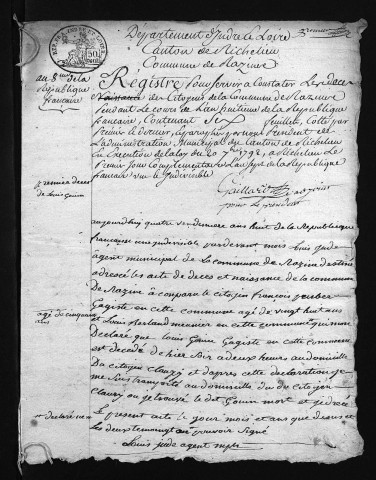 Departement d'Indre et Loire
premier
Canton de Richelieu
Commune de Razines
an 8.me de la Republique francaise
Régistre pour servir a Constater Les deces
Naissance des Citoyens de la Commune de Razines
Pendant le Cours de L'an huitieme de la Republique
francaise, Contenant Six feuillets, Cotté par
Premier et dernier, et paraphé par nous President de
L'administration Municipal du Canton de Richelieu
En Execution de la loy du 20 7bre 1792, a Richelieu Le
Premier Jour Complementaire L'an Sept de la Republique
francaise une et Indivisible
Premier deces de Louis Gouin
aujourdhuy quatre vendemiere ans huit de la Republique
françoise une et indivisible pardevant moy Louis Jude
agent municipal de La commune de Razine destiné
a dresér les acte de deces et naissance de la commune
De Razine a comparu le citoyen françois
Gagiste en cette commune agé de vingt huit ans
agé de cinquante ans
et Louis meunier en cette commune
Declare que Louis Gouin Gagiste en cette commune
est decedé de hier Soir a deux heures au domicille
Du citoyen Clauzy et dapres cette declaration je
me Suis transporté au domicille du dit citoyen
Clauzy ou jé trouvé le dit Gouin mort et jé dresé
Le present acte le jour mois et ans que desus et
les deux temoingt on pouvoir Signé
ont declaré ne
Louis Jude agent mpal